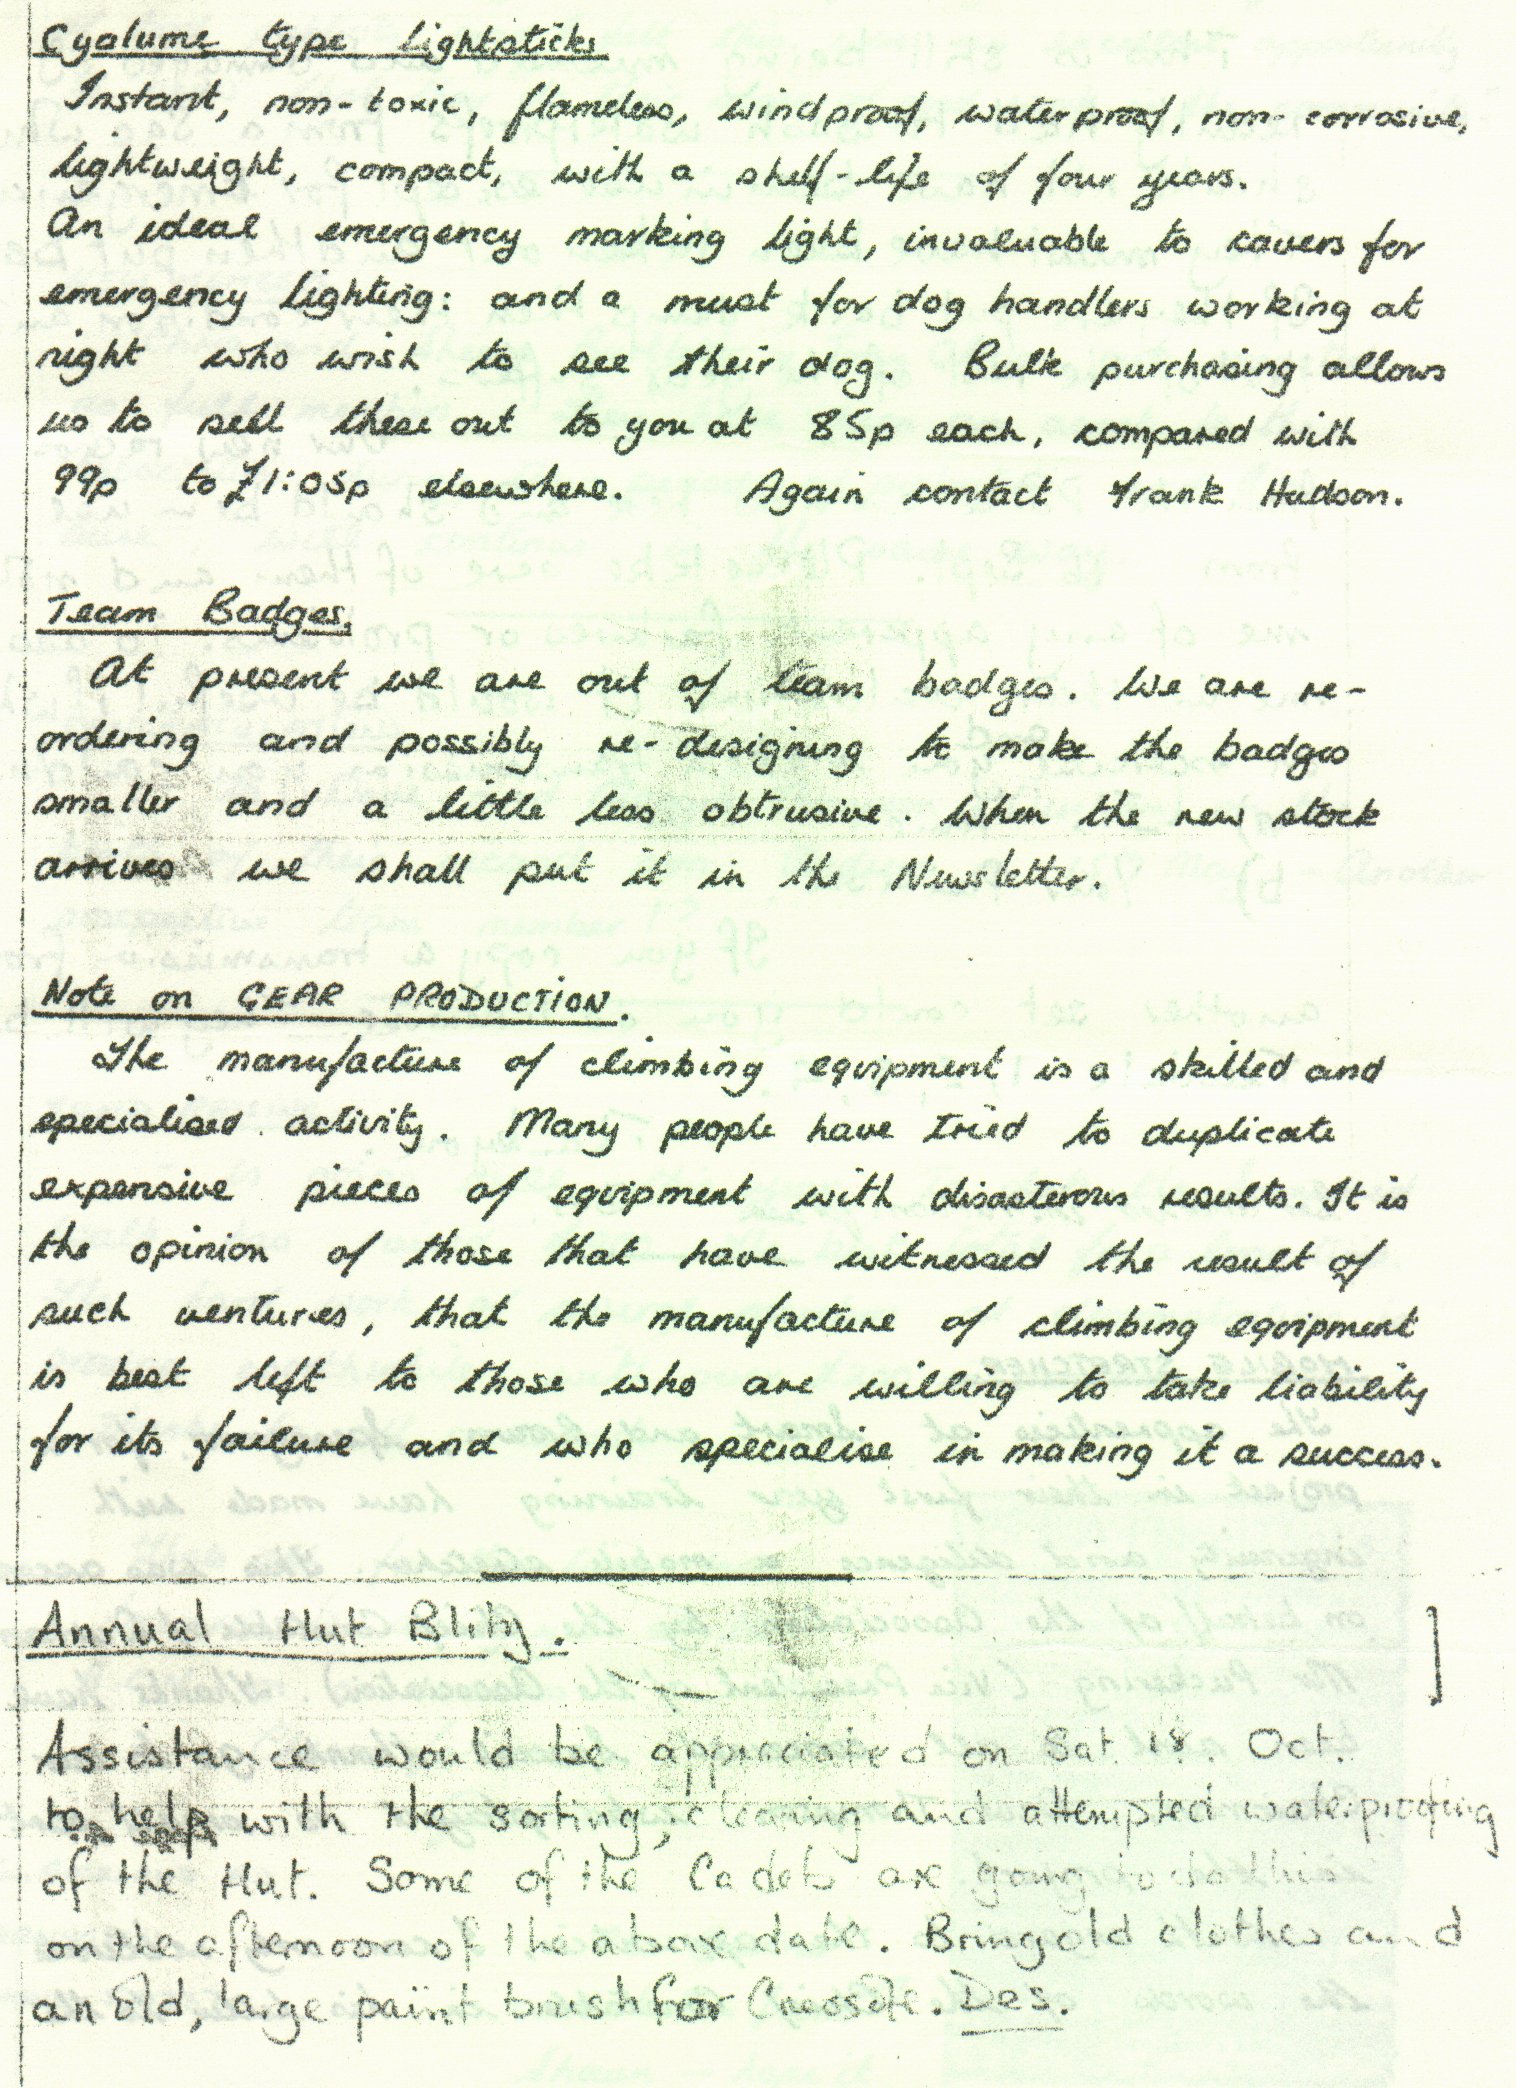 Cyalume type Lightsticks
Instant, non-toxic, flameless, windproof, waterproof, non-corrosive,
lightweight, compact, with a shelf-life of four years.
An ideal emergency marking light, invaluable to cavers for
emergency lighting: and a must for dog handlers working at
night who wish to see their dog. Bulk purchasing allows
us to sell these out to you at 85p each, compared with
99p to £1:05p elsewhere. Again contact Frank Hudson.
Team Badges.
At present we are out of team badges. We are re-
ordering and possibly re-designing to make the badges
smaller and a little less obtrusive. When the new stock
arrives we shall put it in the Newsletter.
Note on GEAR PRODUCTION.
The manufacture of climbing equipment is a skilled and
specialised activity. Many people have tried to duplicate
expensive pieces of equipment with disasterous results. It is
the opinion of those that have witnessed the result of
such ventures, that the manufacture of climbing equipment
is best left to those who are willing to take liability
for its failure and who specialise in making it a success.
Annual Hut Blitz.
Assistance would be appreciated on Sat. 18. Oct.
to help with the sorting, clearing and attempted waterproofing
of the Hut. Some of the Cadets are going to do this
on the afternoon of the above date. Bring old clothes and
an old, large paint brush for Creosote. Des.